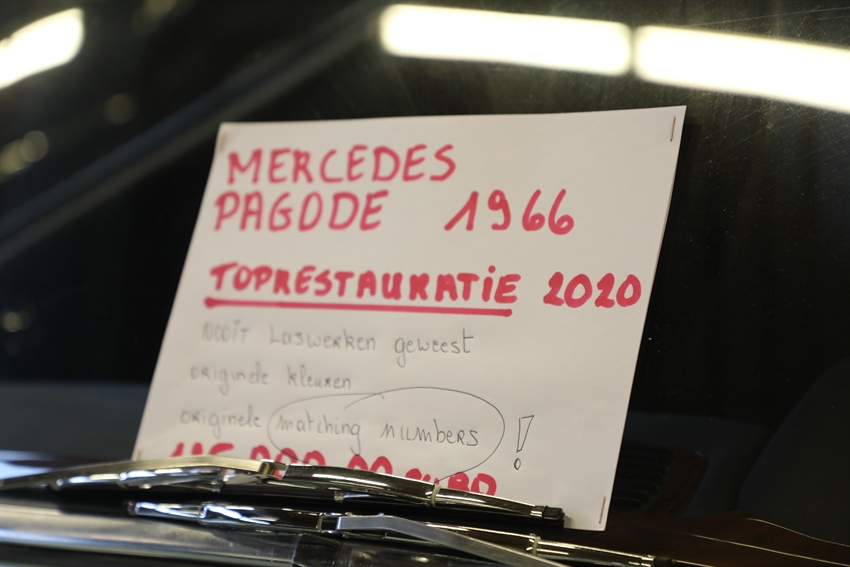 MERCEDES
PAGODE 1966
TOPRESTAURATIE 2020
NOOIT LASWERKEN GEWEEST
ORIGINELE KLEUREN
ORIGINELE matching NUMBERS !